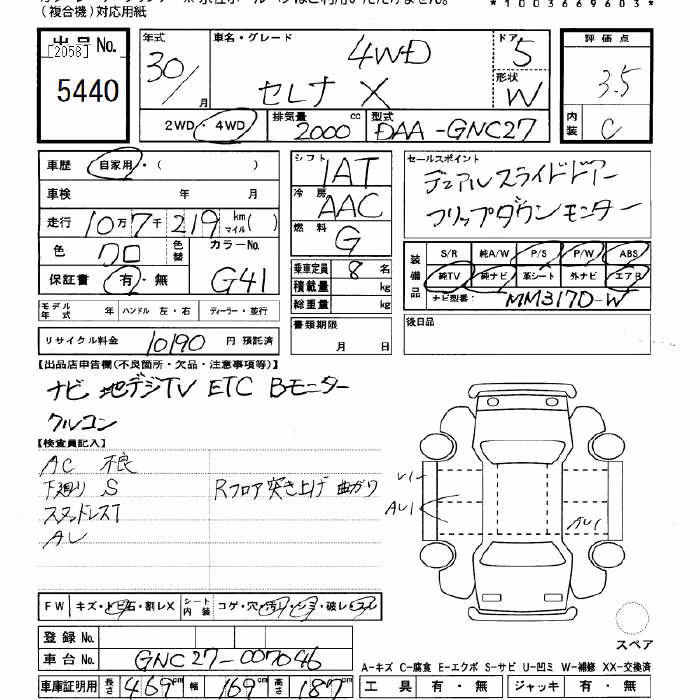 (複合機)対応用紙
*1003669603*
出品No.
[2058]
5440
年式 30/ 月
車名・グレード 4WD
セレナ X
ドア 5
形状 W
2WD・4WD
排気量 2000 cc
型式 DAA-GNC27
評価点 3.5
内装 C
車歴 自家用・( )
車検 年 月
走行 10万7千219 km マイル( )
色 クロ 色替 カラーNo. G41
保証書 有・無
モデル年式 年 ハンドル 左・右 ディーラー・並行
リサイクル料金 10190 円 預託済
シフト IAT
冷房 AAC
燃料 G
乗車定員 8 名
積載量 kg
総重量 kg
書類期限 月 日
セールスポイント
デュアルスライドドアー
フリップダウンモニター
装備品 S/R 純A/W P/S P/W ABS
純TV 純ナビ 革シート 外ナビ エアB
ナビ型番: MM317D-W
後日品
【出品店申告欄(不良箇所・欠品・注意事項等)】
ナビ 地デジTV ETC Bモニター
クルコン
【検査員記入】
AC 不良
下廻り S Rフロア突き上げ 曲がり
スタッドレスT
AU
U1
AU1
AU1
スペア
FW キズ・トビ石・割レX シート内装 コゲ・穴・汚レ・シミ・破レ・スレ
登録No.
車台No. GNC27-007046
車庫証明用 長さ 469cm 幅 169cm 高さ 187cm
A-キズ C-腐食 E-エクボ S-サビ U-凹ミ W-補修 XX-交換済
工具 有・無 ジャッキ 有・無